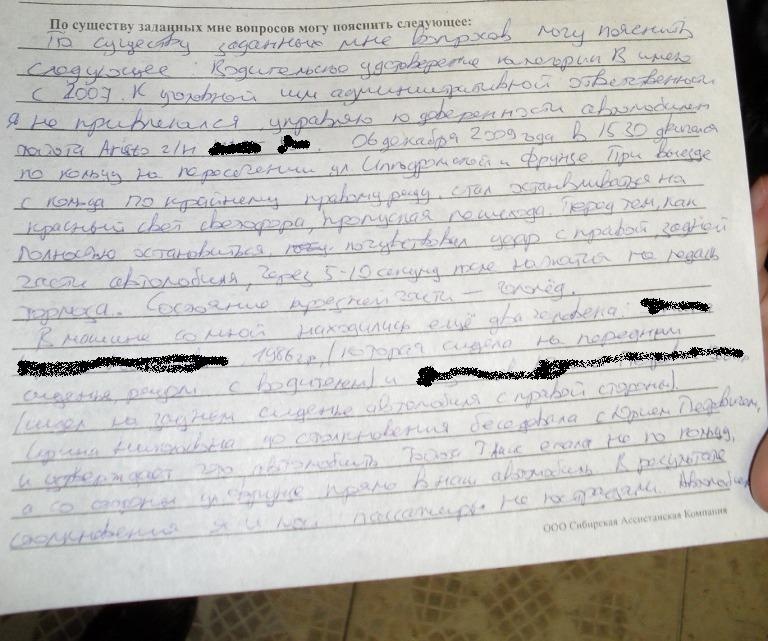 По существу заданных мне вопросов могу пояснить следующее:
По существу заданных мне вопросов могу пояснить
следующее Водительское удостоверение категории В имею
с 2007. К уголовной или административной ответственности
я не привлекался, управляю по доверенности автомобилем
тойота Aristo г/н 06 декабря 2009 года в 15 30 двигался
по кольцу на пересечении ул Ипподромской и Фрунзе. При выезде
с кольца по крайнему правому ряду стал останавливаться на
красный свет светофора, пропуская пешехода. Перед тем, как
полностью остановиться, почувствовал удар с правой задней
части автомобиля, через 5-10 секунд после нажатия на педаль
тормоза. Состояние проезжей части – гололёд.
В машине со мной находились ещё два человека:
1986 г.р., (которая сидела на переднем
сидении, рядом с водителем) и
(сидел на заднем сиденье автомобиля с правой стороны).
до столкновения беседовала с Юрием Петровичем,
и утверждает что автомобиль Тойота ехала не по кольцу,
а со стороны ул Фрунзе прямо в наш автомобиль. В результате
столкновения я и мои пассажиры не пострадали. Автомобиль
ООО Сибирская Ассистанская Компания